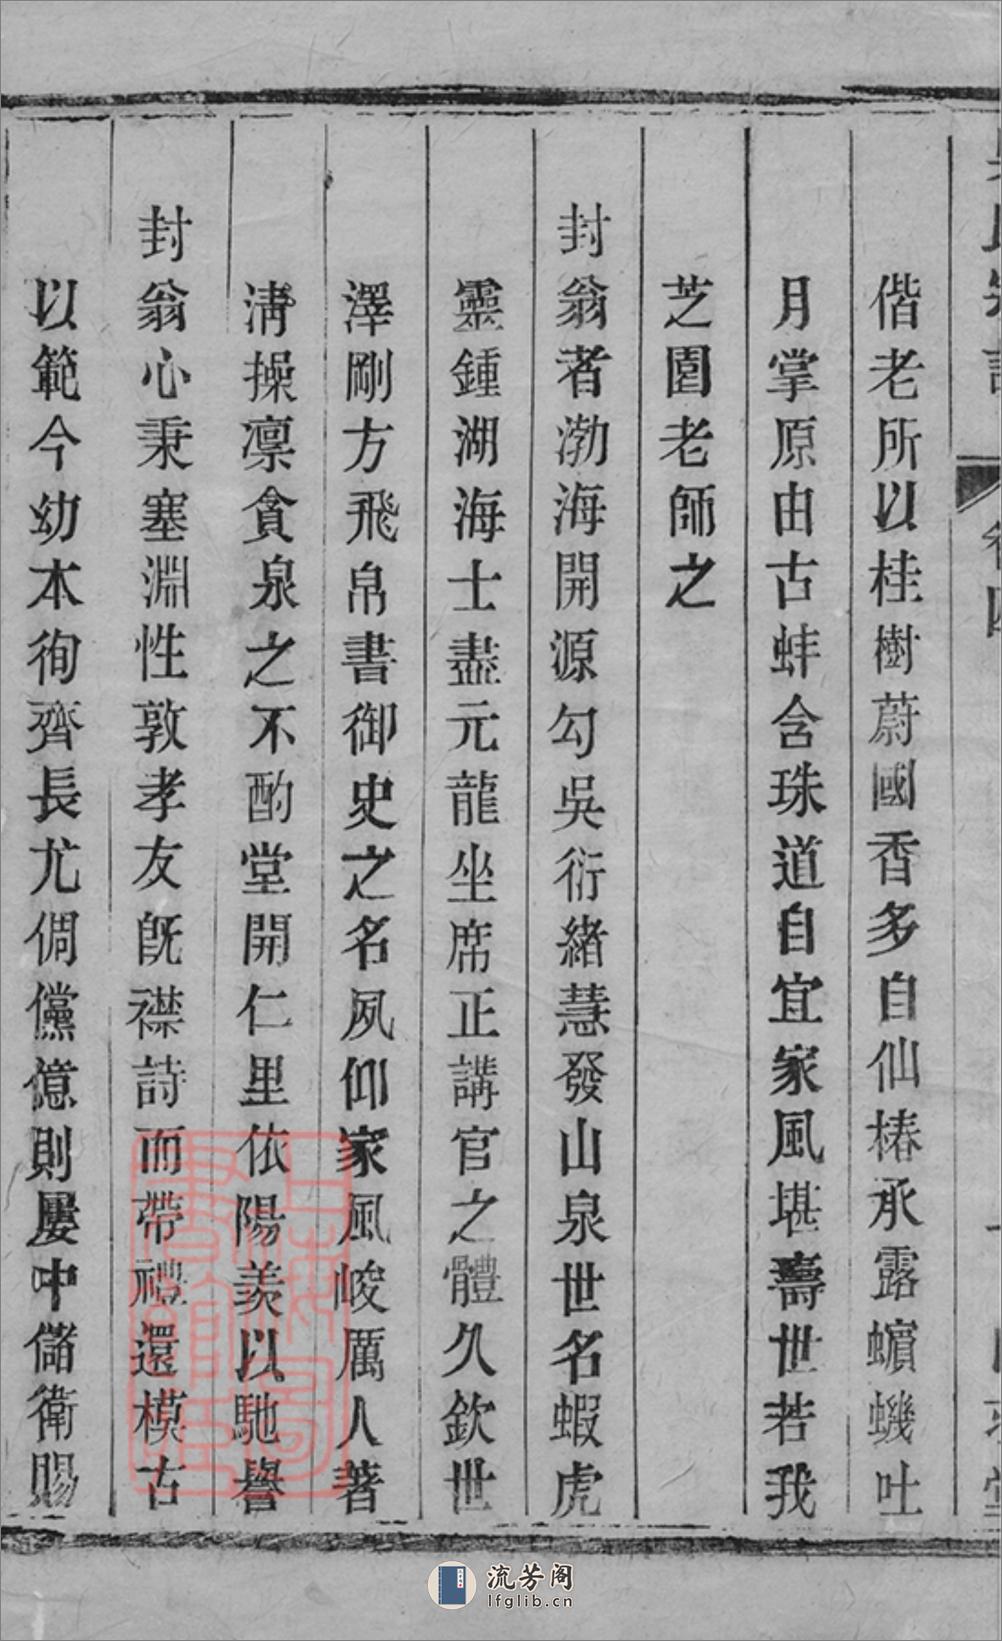 偕老所以桂樹蔚國香多自仙椿承露蠙蟣吐
月掌原由古蚌含珠道自宜家風堪壽世若我
芝園老師之
封翁者渤海開源勾吳衍緒慧發山泉世名蝦虎
靈鍾湖海士盡元龍坐席正講官之體久欽世
澤剛方飛帛書御史之名夙仰家風峻厲人著
淸操凛貪泉之不酌堂開仁里依陽羡以馳譽
封翁心秉塞淵性敦孝友旣襟詩而帶禮還模古
以範今幼本徇齊長尤倜儻億則屢中儲衛賜
流芳阁
lfglib.cn